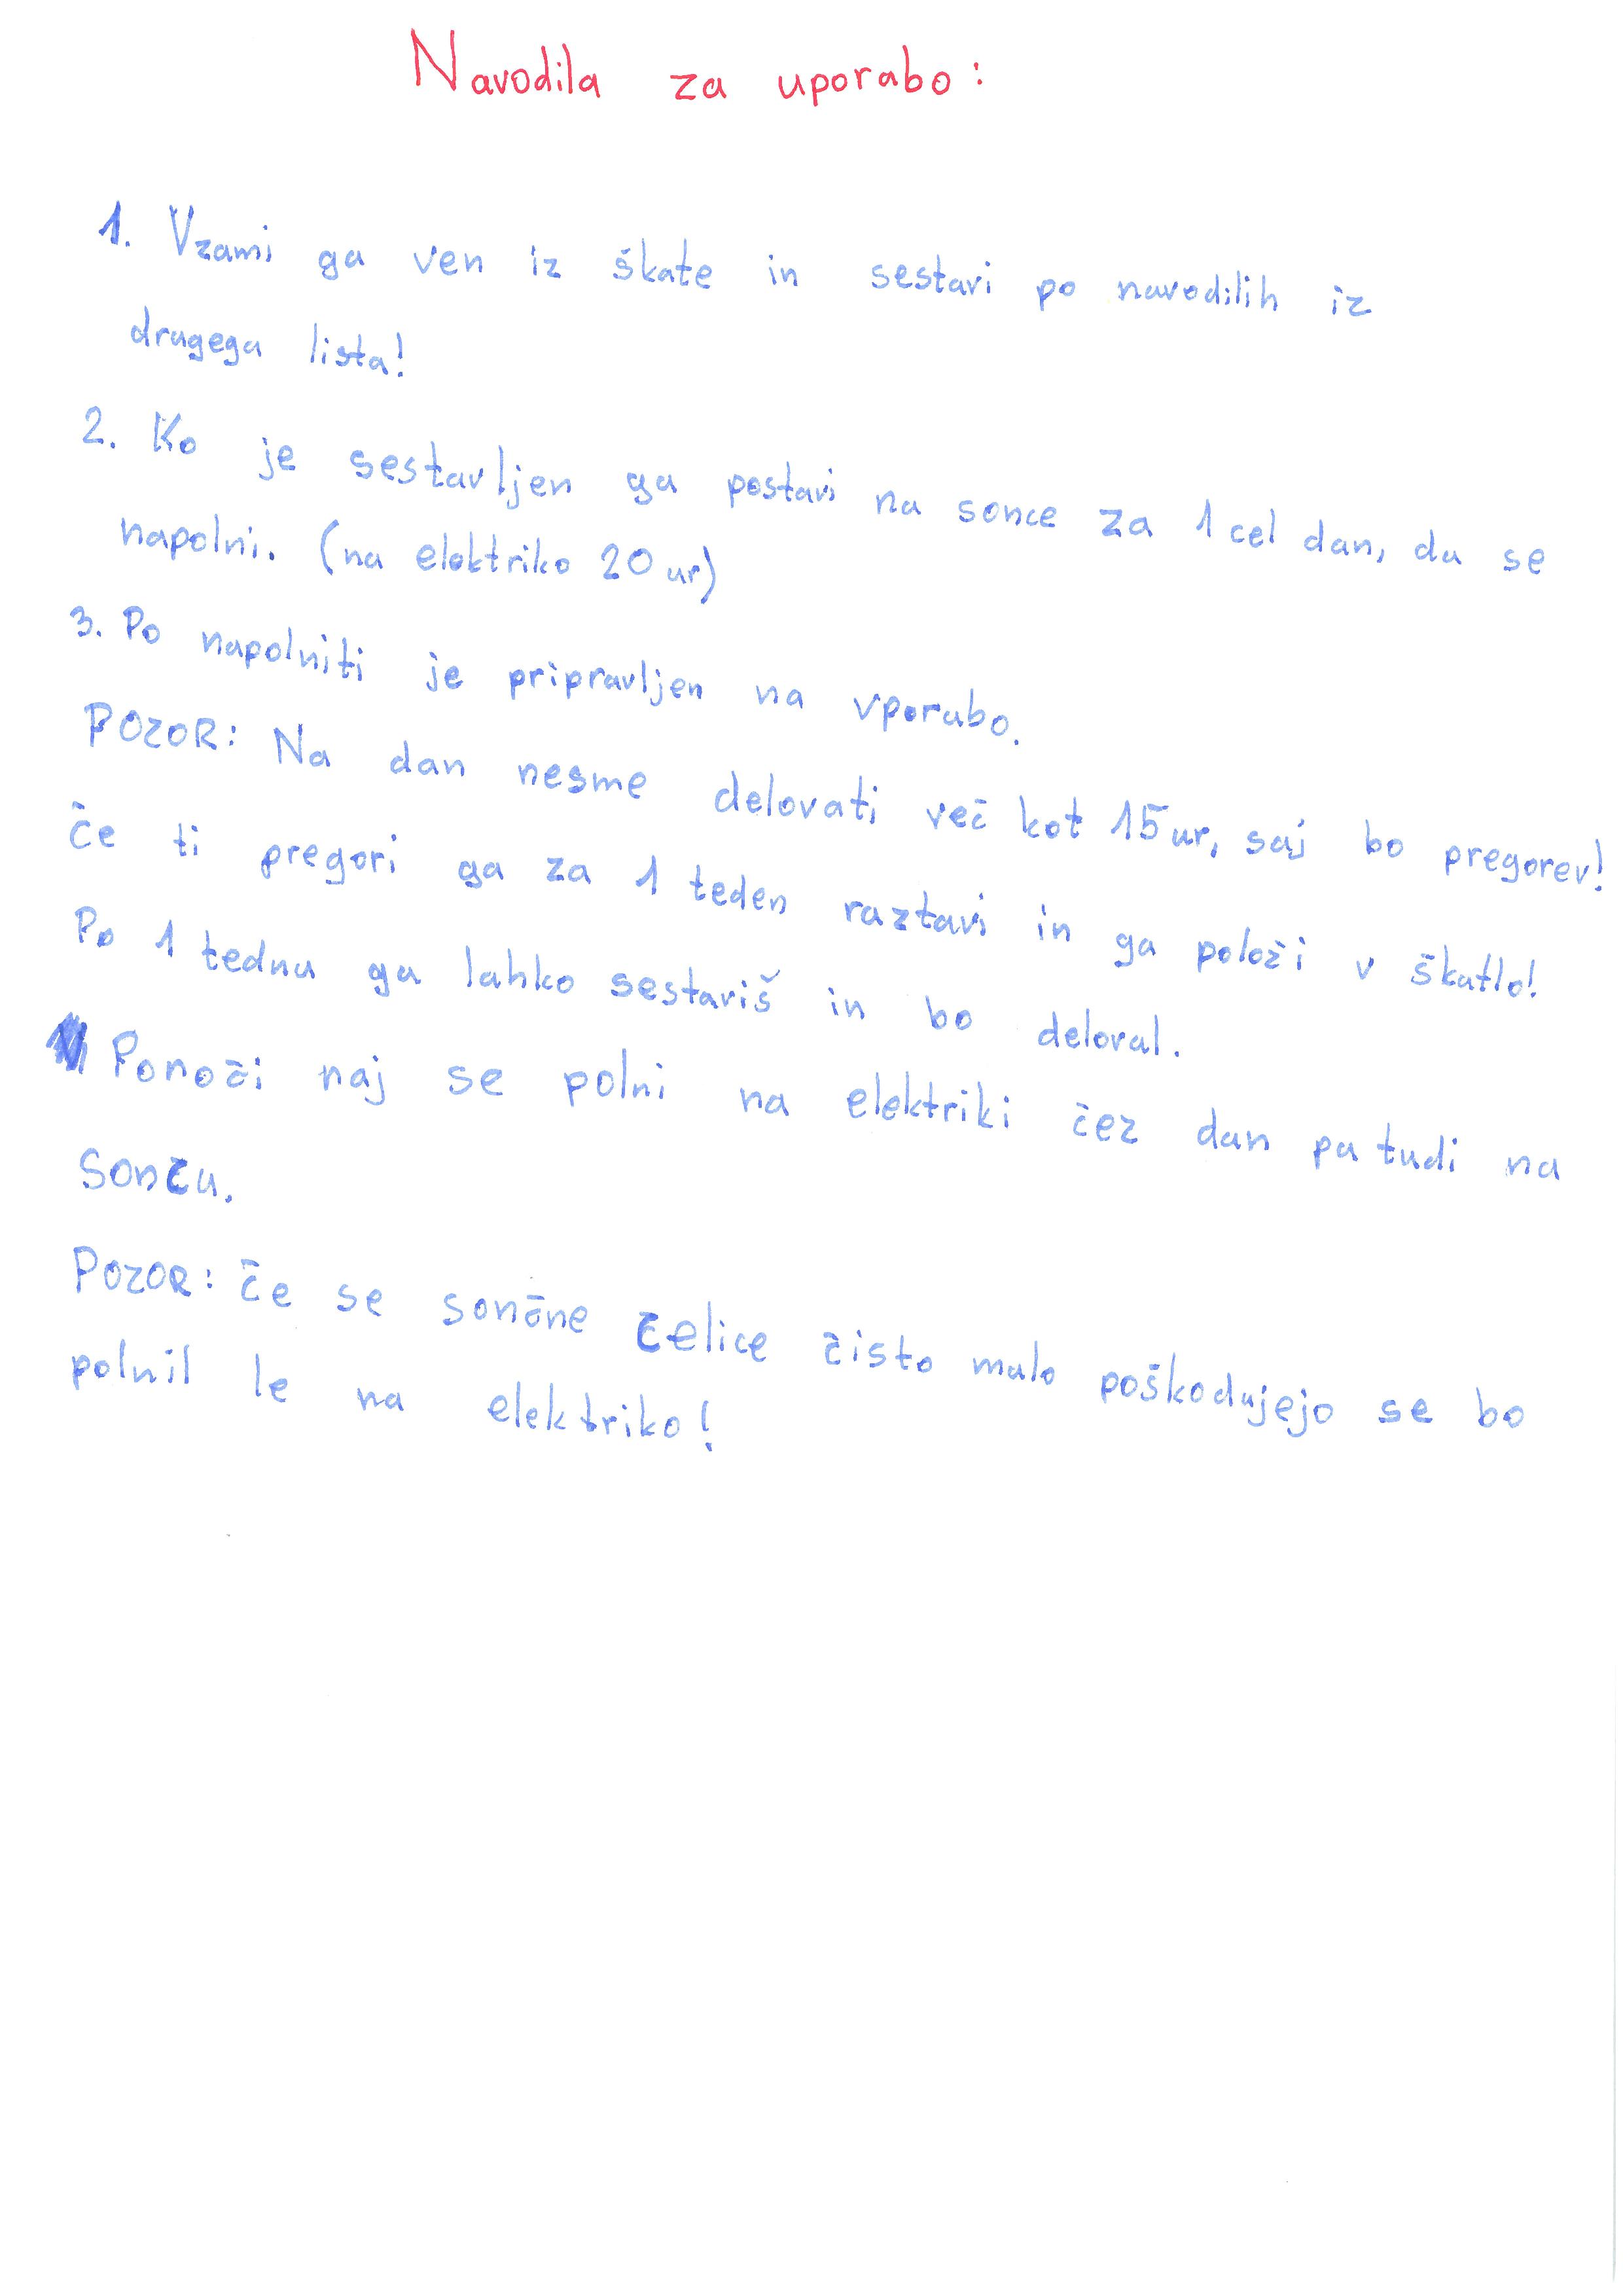 Navodila za uporabo:
1. Vzami ga ven iz škate in sestavi po navodilih iz
drugega lista!
2. Ko je sestavljen ga postavi na sonce za 1 cel dan, da se
napolni. (na elektriko 20 ur)
3. Po napolniti je pripravljen na vporabo.
POZOR: Na dan nesme delovati več kot 15 ur, saj bo pregorev!
če ti pregori ga za 1 teden raztavi in ga položi v škatlo!
Po 1 tednu ga lahko sestaviš in bo deloval.
Ponoči naj se polni na elektriki čez dan pa tudi na
Soncu.
POZOR: če se sončne celice čisto malo poškodujejo se bo
polnil le na elektriko!